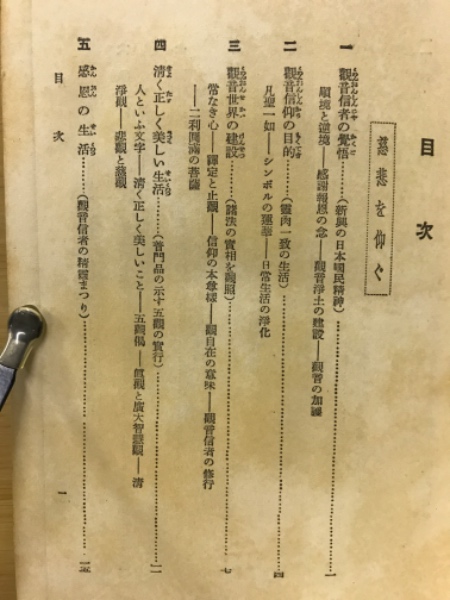 目次
慈悲を仰ぐ
一 觀音信者の覺悟……(新興の日本國民精神)……一
順境と逆境——感謝報恩の念——觀音淨土の建設——觀音の加護
二 觀音信仰の目的……(靈肉一致の生活)……四
凡聖一如——シンボルの蓮華——日常生活の淨化
三 觀音世界の建設……(諸法の實相を觀照)……七
常なき心——禪定と止觀——信仰の本尊樣——觀自在の意味——觀音信者の修行
——二利圓滿の菩薩
四 淸く正しく美しい生活……(普門品の示す五觀の實行)……一一
人といふ文字——淸く正しく美しいこと——五觀偈——眞觀と廣大智慧觀——淸
淨觀——悲觀と慈觀
五 感恩の生活……(觀音信者の精靈まつり)……一五
目次
一